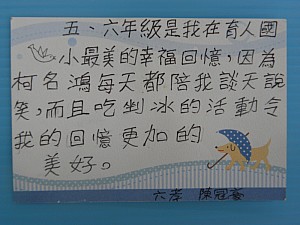 五、六年級是我在育人國
小最美的幸福回憶,因為
柯名鴻每天都陪我談天說
笑,而且吃剉冰的活動令
我的回憶更加的
美好。
六孝 陳冠豪